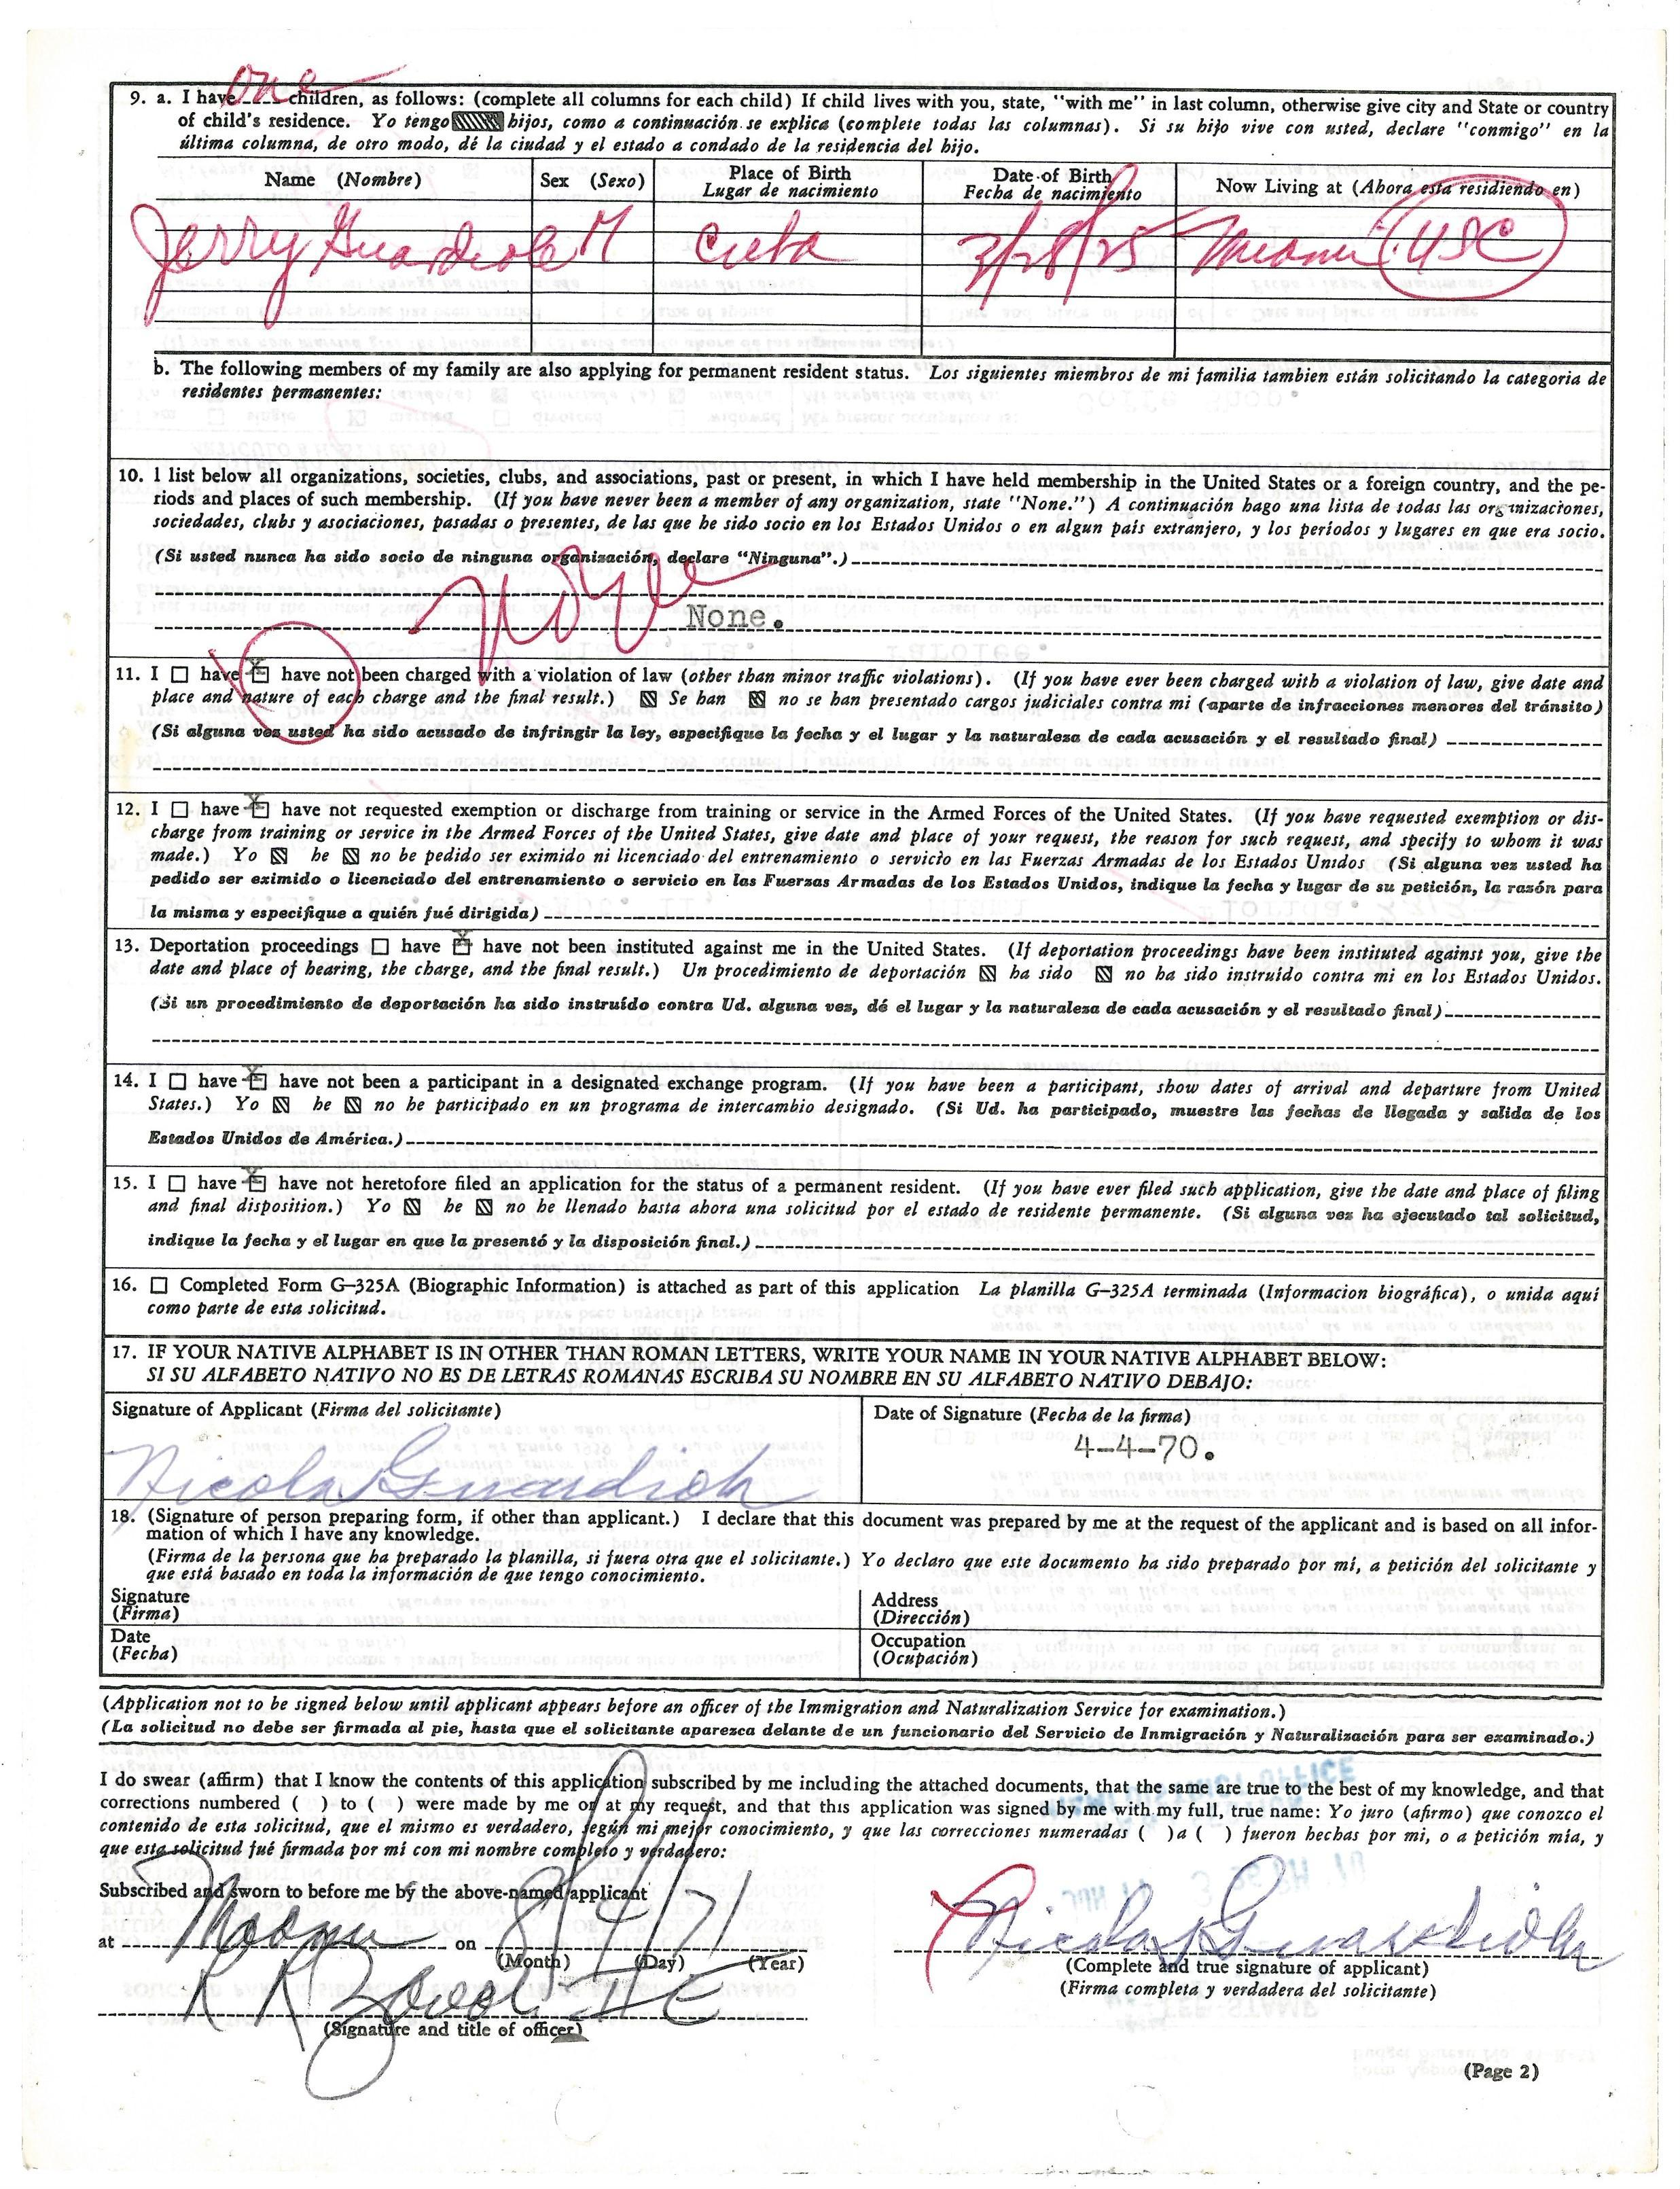 one
9. a. I have____children, as follows: (complete all columns for each child) If child lives with you, state, "with me" in last column, otherwise give city and State or country
of child's residence. Yo tengo hijos, como a continuación se explica (complete todas las columnas). Si su hijo vive con usted, declare "conmigo" en la
última columna, de otro modo, dé la ciudad y el estado a condado de la residencia del hijo.
Name (Nombre) Sex (Sexo) Place of Birth Date of Birth Now Living at (Ahora esta residiendo en)
Lugar de nacimiento Fecha de nacimiento
Jerry Guardiola M Cuba 3/28/25 Miami USC
b. The following members of my family are also applying for permanent resident status. Los siguientes miembros de mi familia tambien están solicitando la categoria de
residentes permanentes:
10. I list below all organizations, societies, clubs, and associations, past or present, in which I have held membership in the United States or a foreign country, and the pe-
riods and places of such membership. (If you have never been a member of any organization, state "None.") A continuación hago una lista de todas las organizaciones,
sociedades, clubs y asociaciones, pasadas o presentes, de las que he sido socio en los Estados Unidos o en algun país extranjero, y los períodos y lugares en que era socio.
(Si usted nunca ha sido socio de ninguna organización, declare "Ninguna".)
None
None.
11. I ☐ have ☒ have not been charged with a violation of law (other than minor traffic violations). (If you have ever been charged with a violation of law, give date and
place and nature of each charge and the final result.) Se han no se han presentado cargos judiciales contra mi (aparte de infracciones menores del tránsito)
(Si alguna vez usted ha sido acusado de infringir la ley, especifique la fecha y el lugar y la naturaleza de cada acusación y el resultado final)
12. I ☐ have ☒ have not requested exemption or discharge from training or service in the Armed Forces of the United States. (If you have requested exemption or dis-
charge from training or service in the Armed Forces of the United States, give date and place of your request, the reason for such request, and specify to whom it was
made.) Yo he no be pedido ser eximido ni licenciado del entrenamiento o servicio en las Fuerzas Armadas de los Estados Unidos (Si alguna vez usted ha
pedido ser eximido o licenciado del entrenamiento o servicio en las Fuerzas Armadas de los Estados Unidos, indique la fecha y lugar de su petición, la razón para
la misma y especifique a quién fué dirigida)
13. Deportation proceedings ☐ have ☒ have not been instituted against me in the United States. (If deportation proceedings have been instituted against you, give the
date and place of hearing, the charge, and the final result.) Un procedimiento de deportación ha sido no ha sido instruído contra mi en los Estados Unidos.
(Si un procedimiento de deportación ha sido instruído contra Ud. alguna vez, dé el lugar y la naturaleza de cada acusación y el resultado final)
14. I ☐ have ☒ have not been a participant in a designated exchange program. (If you have been a participant, show dates of arrival and departure from United
States.) Yo he no he participado en un programa de intercambio designado. (Si Ud. ha participado, muestre las fechas de llegada y salida de los
Estados Unidos de América.)
15. I ☐ have ☒ have not heretofore filed an application for the status of a permanent resident. (If you have ever filed such application, give the date and place of filing
and final disposition.) Yo he no he llenado hasta ahora una solicitud por el estado de residente permanente. (Si alguna vez ha ejecutado tal solicitud,
indique la fecha y el lugar en que la presentó y la disposición final.)
16. ☐ Completed Form G-325A (Biographic Information) is attached as part of this application La planilla G-325A terminada (Informacion biográfica), o unida aquí
como parte de esta solicitud.
17. IF YOUR NATIVE ALPHABET IS IN OTHER THAN ROMAN LETTERS, WRITE YOUR NAME IN YOUR NATIVE ALPHABET BELOW:
SI SU ALFABETO NATIVO NO ES DE LETRAS ROMANAS ESCRIBA SU NOMBRE EN SU ALFABETO NATIVO DEBAJO:
Signature of Applicant (Firma del solicitante) Date of Signature (Fecha de la firma)
Nicolas Guardiola 4-4-70.
18. (Signature of person preparing form, if other than applicant.) I declare that this document was prepared by me at the request of the applicant and is based on all infor-
mation of which I have any knowledge.
(Firma de la persona que ha preparado la planilla, si fuera otra que el solicitante.) Yo declaro que este documento ha sido preparado por mí, a petición del solicitante y
que está basado en toda la información de que tengo conocimiento.
Signature Address
(Firma) (Dirección)
Date Occupation
(Fecha) (Ocupación)
(Application not to be signed below until applicant appears before an officer of the Immigration and Naturalization Service for examination.)
(La solicitud no debe ser firmada al pie, hasta que el solicitante aparezca delante de un funcionario del Servicio de Inmigración y Naturalización para ser examinado.)
I do swear (affirm) that I know the contents of this application subscribed by me including the attached documents, that the same are true to the best of my knowledge, and that
corrections numbered ( ) to ( ) were made by me or at my request, and that this application was signed by me with my full, true name: Yo juro (afirmo) que conozco el
contenido de esta solicitud, que el mismo es verdadero, según mi mejor conocimiento, y que las correcciones numeradas ( )a ( ) fueron hechas por mi, o a petición mía, y
que esta solicitud fué firmada por mí con mi nombre completo y verdadero:
Subscribed and sworn to before me by the above-named applicant
at Miami on 8/4/71 Nicolas Guardiola
(Month) (Day) (Year) (Complete and true signature of applicant)
(Firma completa y verdadera del solicitante)
(Signature and title of officer)
(Page 2)